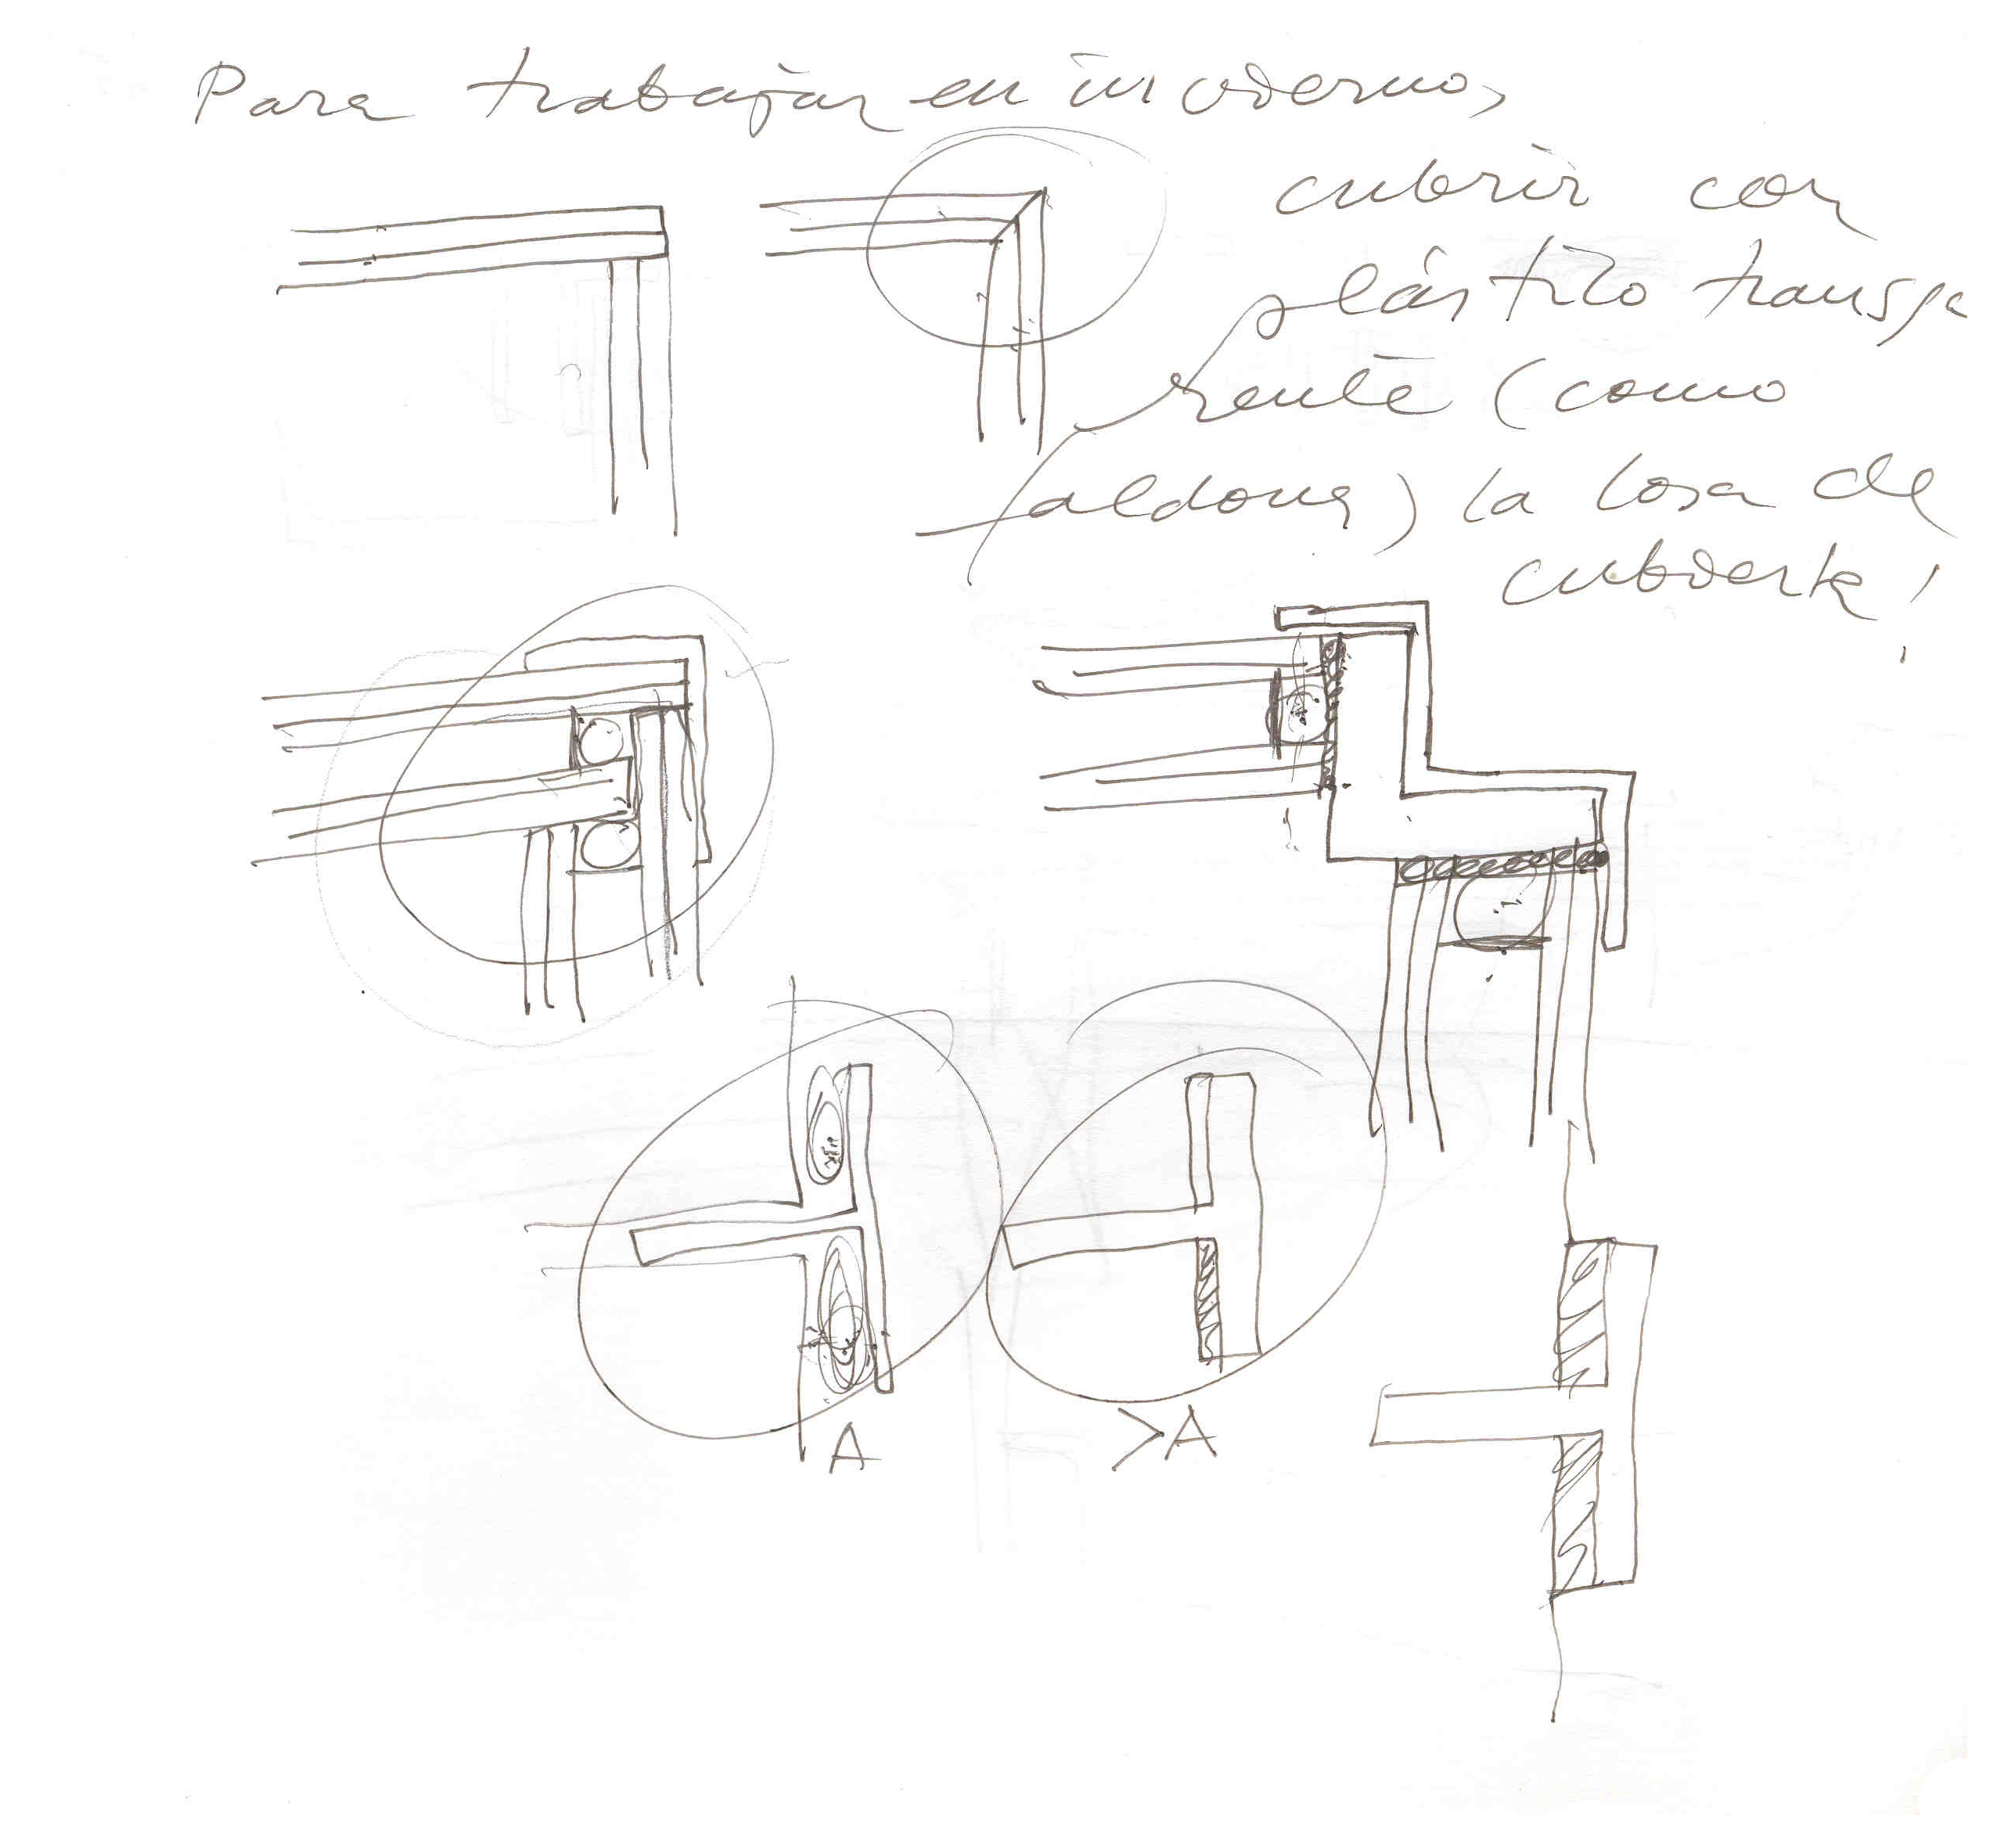 Para trabajar en invierno,
cubrir con
plástico transpa
rente (como
faldona) la losa de
cubierta,
A
>A